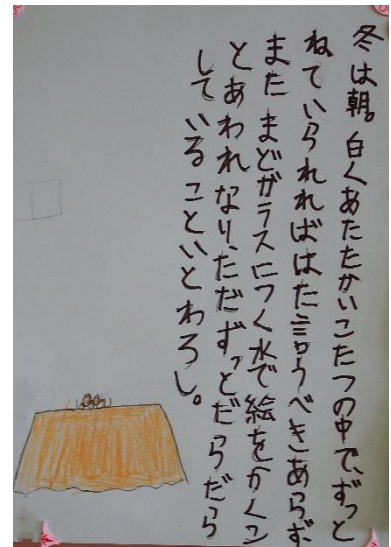 冬は朝。白くあたたかいこたつの中で、ずっと
ねていられればはた言うべきあらず
また まどガラスにつく水で絵をかくこ
とあわれなり、ただずっとだらだら
していることいとわろし。